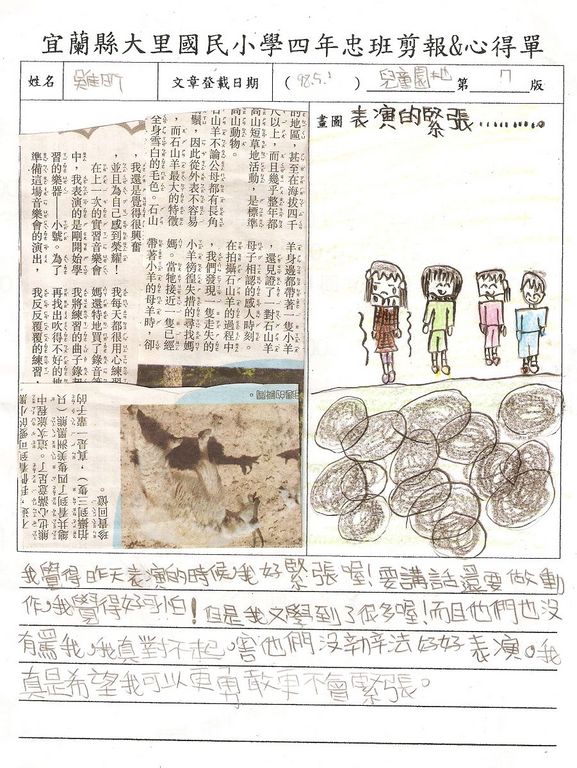 宜蘭縣大里國民小學四年忠班剪報&心得單
姓名 文章登載日期 (98.5.1) 兒童園地 第 7 版
的地區,甚至在海拔四千
尺以上,而且幾乎整年都
高山短草地活動,是標準
高山動物。
石山羊不論公母都有長角
顯,因此從外表不容易
,而石山羊最大的特徵
全身雪白的毛色。石山
羊身邊都帶著一隻小羊
,還見證了一對石山羊
母子相認的感人時刻。
在拍攝石山羊的過程中
,我們發現一隻走失的
小羊徬徨失措的尋找媽
媽。當牠接近一隻已經
帶著小羊的母羊時,卻
我還是覺得很興奮
,並且為自己感到榮耀!
在上一次的實習音樂會
中,我表演的是剛開始學
習的樂器——小號。為了
準備這場音樂會的演出,
我每天都很用心練習
媽還特地買了錄音
我將練習的曲子錄
再找出吹得不好的地
我反反覆覆的練習,
畫圖 表演的緊張.........
我覺得昨天表演的時候,我好緊張喔!要講話還要做動
作,我覺得好可怕!但是我又學到了很多喔!而且他們也沒
有罵我,我真對不起,害他們沒辦法好好表演。我
真是希望我可以更勇敢更不會緊張。